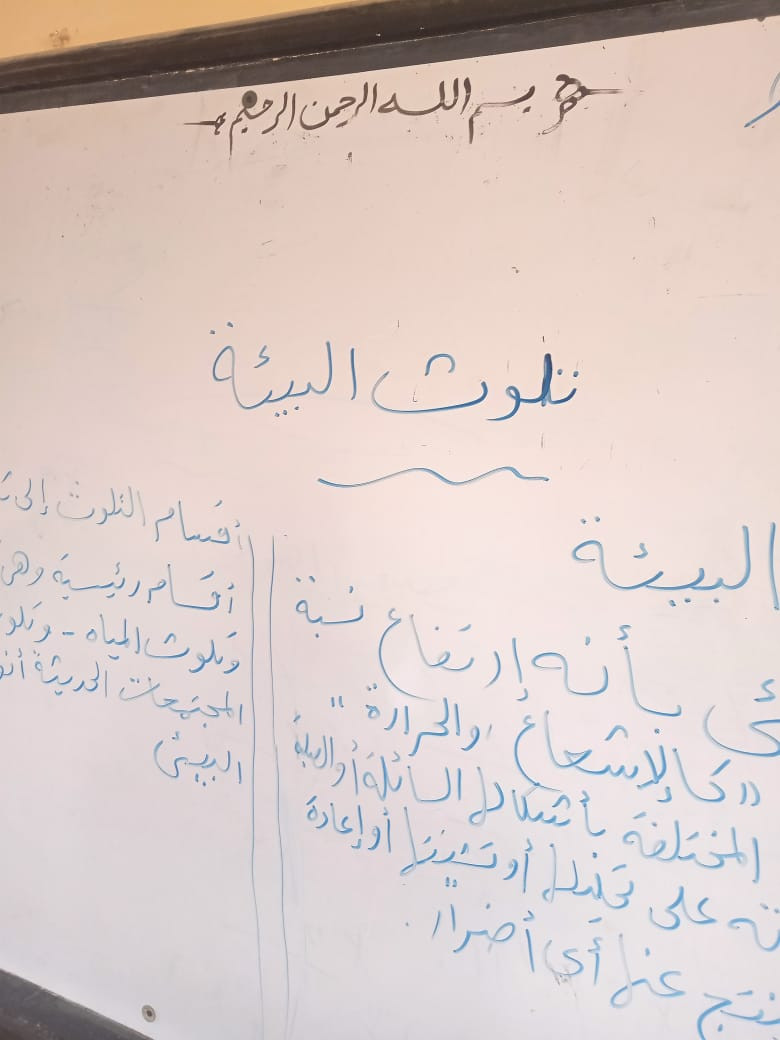 بسم الله الرحمن الرحيم
تلوث البيئة
البيئة
بأنه إرتفاع نسبة
"كالإشعاع والحرارة"
المختلفة بأشكالها السائلة أو الصلبة
على تحليلها أو تشتيتها أو إعادة
عنها أي أضرار.
أقسام التلوث إلى
أقسام رئيسية وهي
وتلوث المياه - وتلو
المجتمعات الحديثة
البيئي